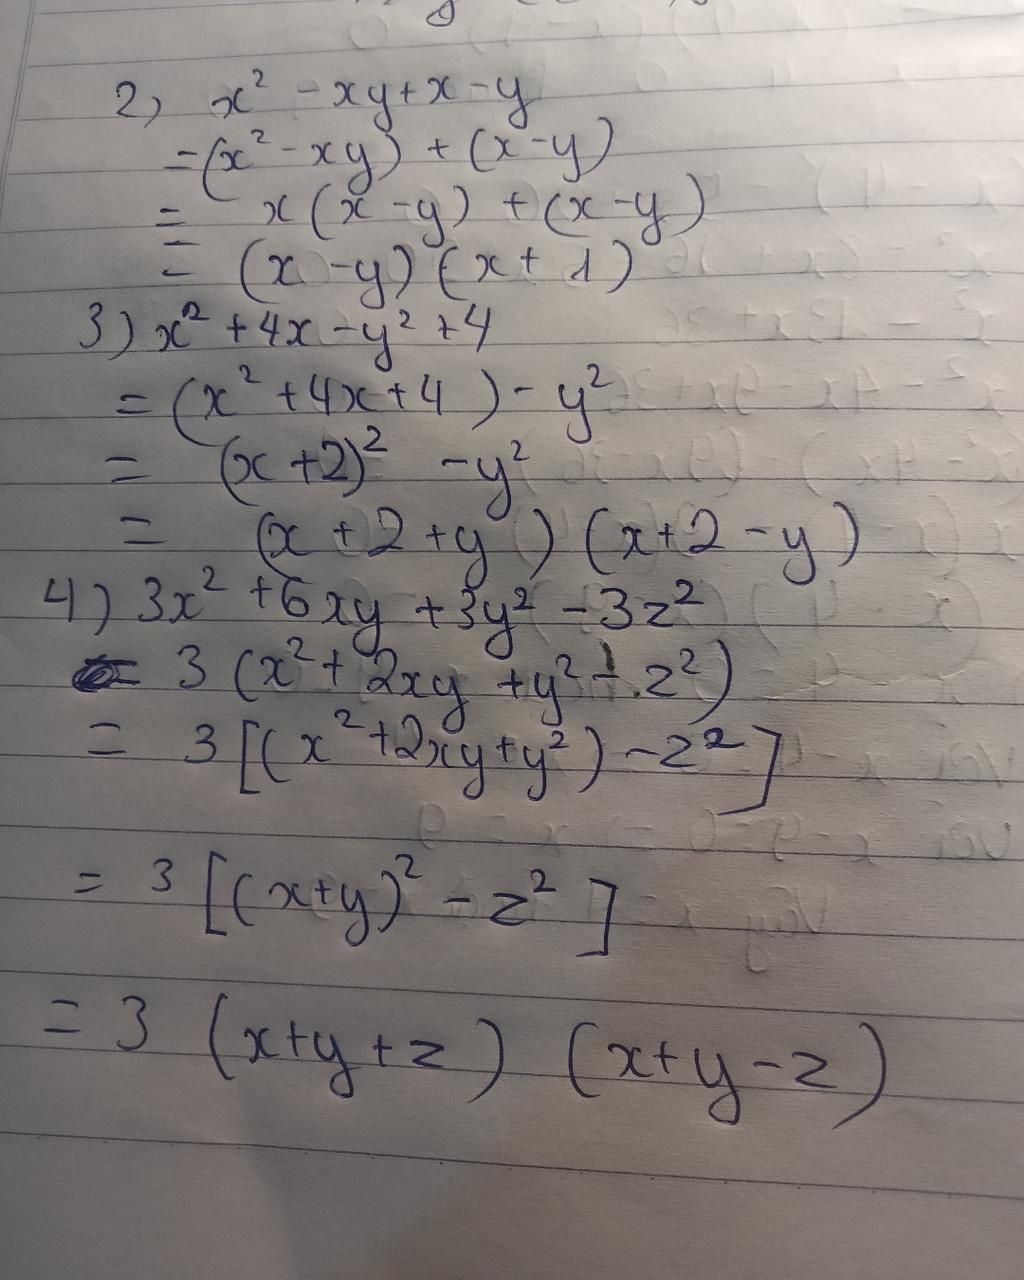 2) x² - xy + x - y
= (x² - xy) + (x - y)
= x (x - y) + (x - y)
= (x - y) (x + 1)
3) x² + 4x - y² + 4
= (x² + 4x + 4) - y²
= (x + 2)² - y²
= (x + 2 + y) (x + 2 - y)
4) 3x² + 6xy + 3y² - 3z²
= 3 (x² + 2xy + y² - z²)
= 3 [(x² + 2xy + y²) - z²]
= 3 [(x + y)² - z²]
= 3 (x + y + z) (x + y - z)